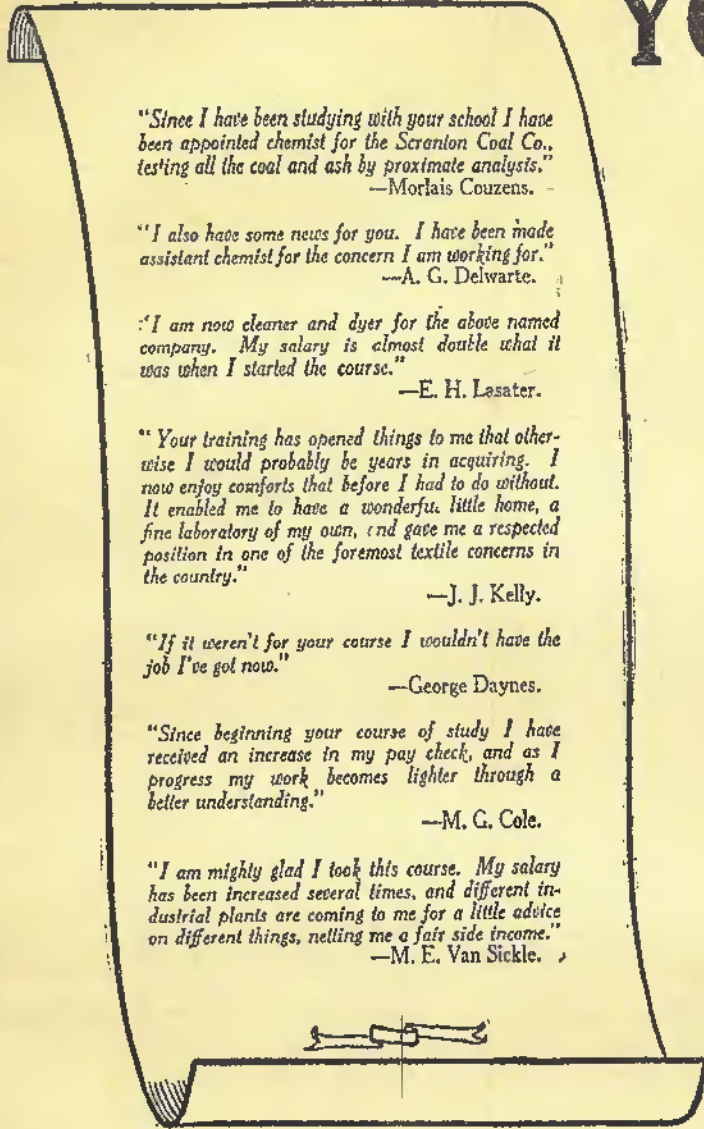 YO
"Since I have been studying with your school I have
been appointed chemist for the Scranton Coal Co.,
testing all the coal and ash by proximate analysis."
—Morlais Couzens.
"I also have some news for you. I have been made
assistant chemist for the concern I am working for."
—A. G. Delwarte.
"I am now cleaner and dyer for the above named
company. My salary is almost double what it
was when I started the course."
—E. H. Lasater.
"Your training has opened things to me that other-
wise I would probably be years in acquiring. I
now enjoy comforts that before I had to do without.
It enabled me to have a wonderful little home, a
fine laboratory of my own, and gave me a respected
position in one of the foremost textile concerns in
the country."
—J. J. Kelly.
"If it weren't for your course I wouldn't have the
job I've got now."
—George Daynes.
"Since beginning your course of study I have
received an increase in my pay check, and as I
progress my work becomes lighter through a
better understanding."
—M. G. Cole.
"I am mighty glad I took this course. My salary
has been increased several times, and different in-
dustrial plants are coming to me for a little advice
on different things, netting me a fair side income."
—M. E. Van Sickle.